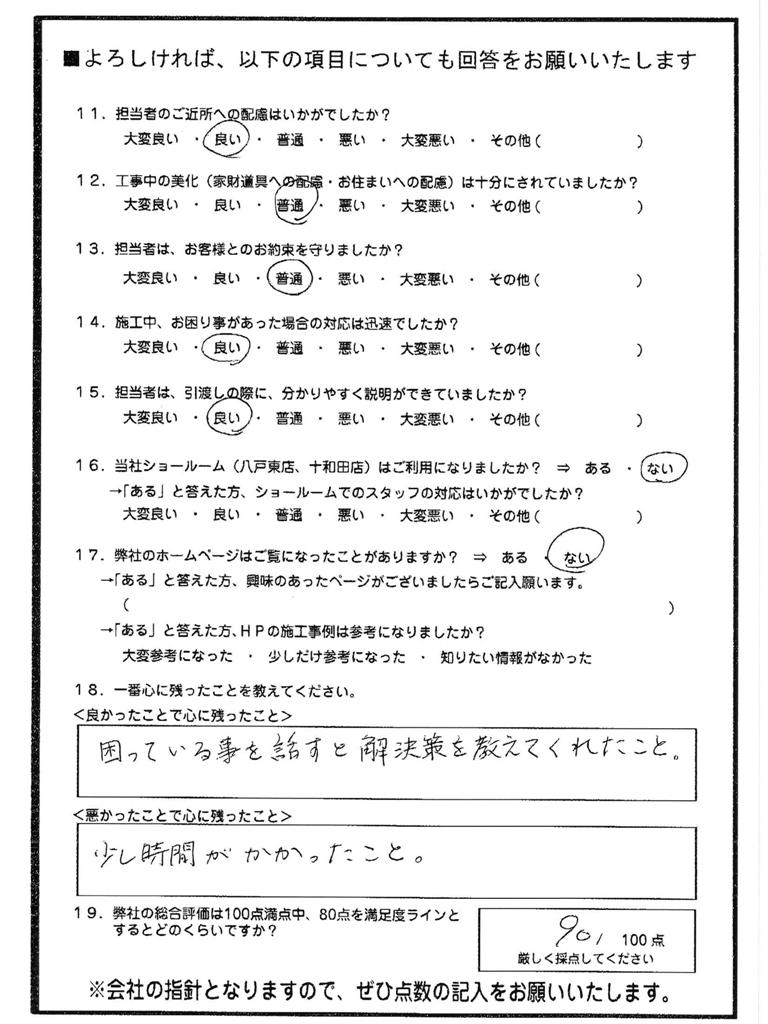 ■よろしければ、以下の項目についても回答をお願いいたします
11．担当者のご近所への配慮はいかがでしたか？
大変良い ・ 良い ・ 普通 ・ 悪い ・ 大変悪い ・ その他（　　　　　）
12．工事中の美化（家財道具への配慮・お住まいへの配慮）は十分にされていましたか？
大変良い ・ 良い ・ 普通 ・ 悪い ・ 大変悪い ・ その他（　　　　　）
13．担当者は、お客様とのお約束を守りましたか？
大変良い ・ 良い ・ 普通 ・ 悪い ・ 大変悪い ・ その他（　　　　　）
14．施工中、お困り事があった場合の対応は迅速でしたか？
大変良い ・ 良い ・ 普通 ・ 悪い ・ 大変悪い ・ その他（　　　　　）
15．担当者は、引渡しの際に、分かりやすく説明ができていましたか？
大変良い ・ 良い ・ 普通 ・ 悪い ・ 大変悪い ・ その他（　　　　　）
16．当社ショールーム（八戸東店、十和田店）はご利用になりましたか？ ⇒ ある ・ ない
→「ある」と答えた方、ショールームでのスタッフの対応はいかがでしたか？
大変良い ・ 良い ・ 普通 ・ 悪い ・ 大変悪い ・ その他（　　　　　）
17．弊社のホームページはご覧になったことがありますか？ ⇒ ある ・ ない
→「ある」と答えた方、興味のあったページがございましたらご記入願います。
（　　　　　）
→「ある」と答えた方、HPの施工事例は参考になりましたか？
大変参考になった ・ 少しだけ参考になった ・ 知りたい情報がなかった
18．一番心に残ったことを教えてください。
＜良かったことで心に残ったこと＞
困っている事を話すと解決策を教えてくれたこと。
＜悪かったことで心に残ったこと＞
少し時間がかかったこと。
19．弊社の総合評価は100点満点中、80点を満足度ラインと
するとどのくらいですか？
90/100点
厳しく採点してください
※会社の指針となりますので、ぜひ点数の記入をお願いいたします。